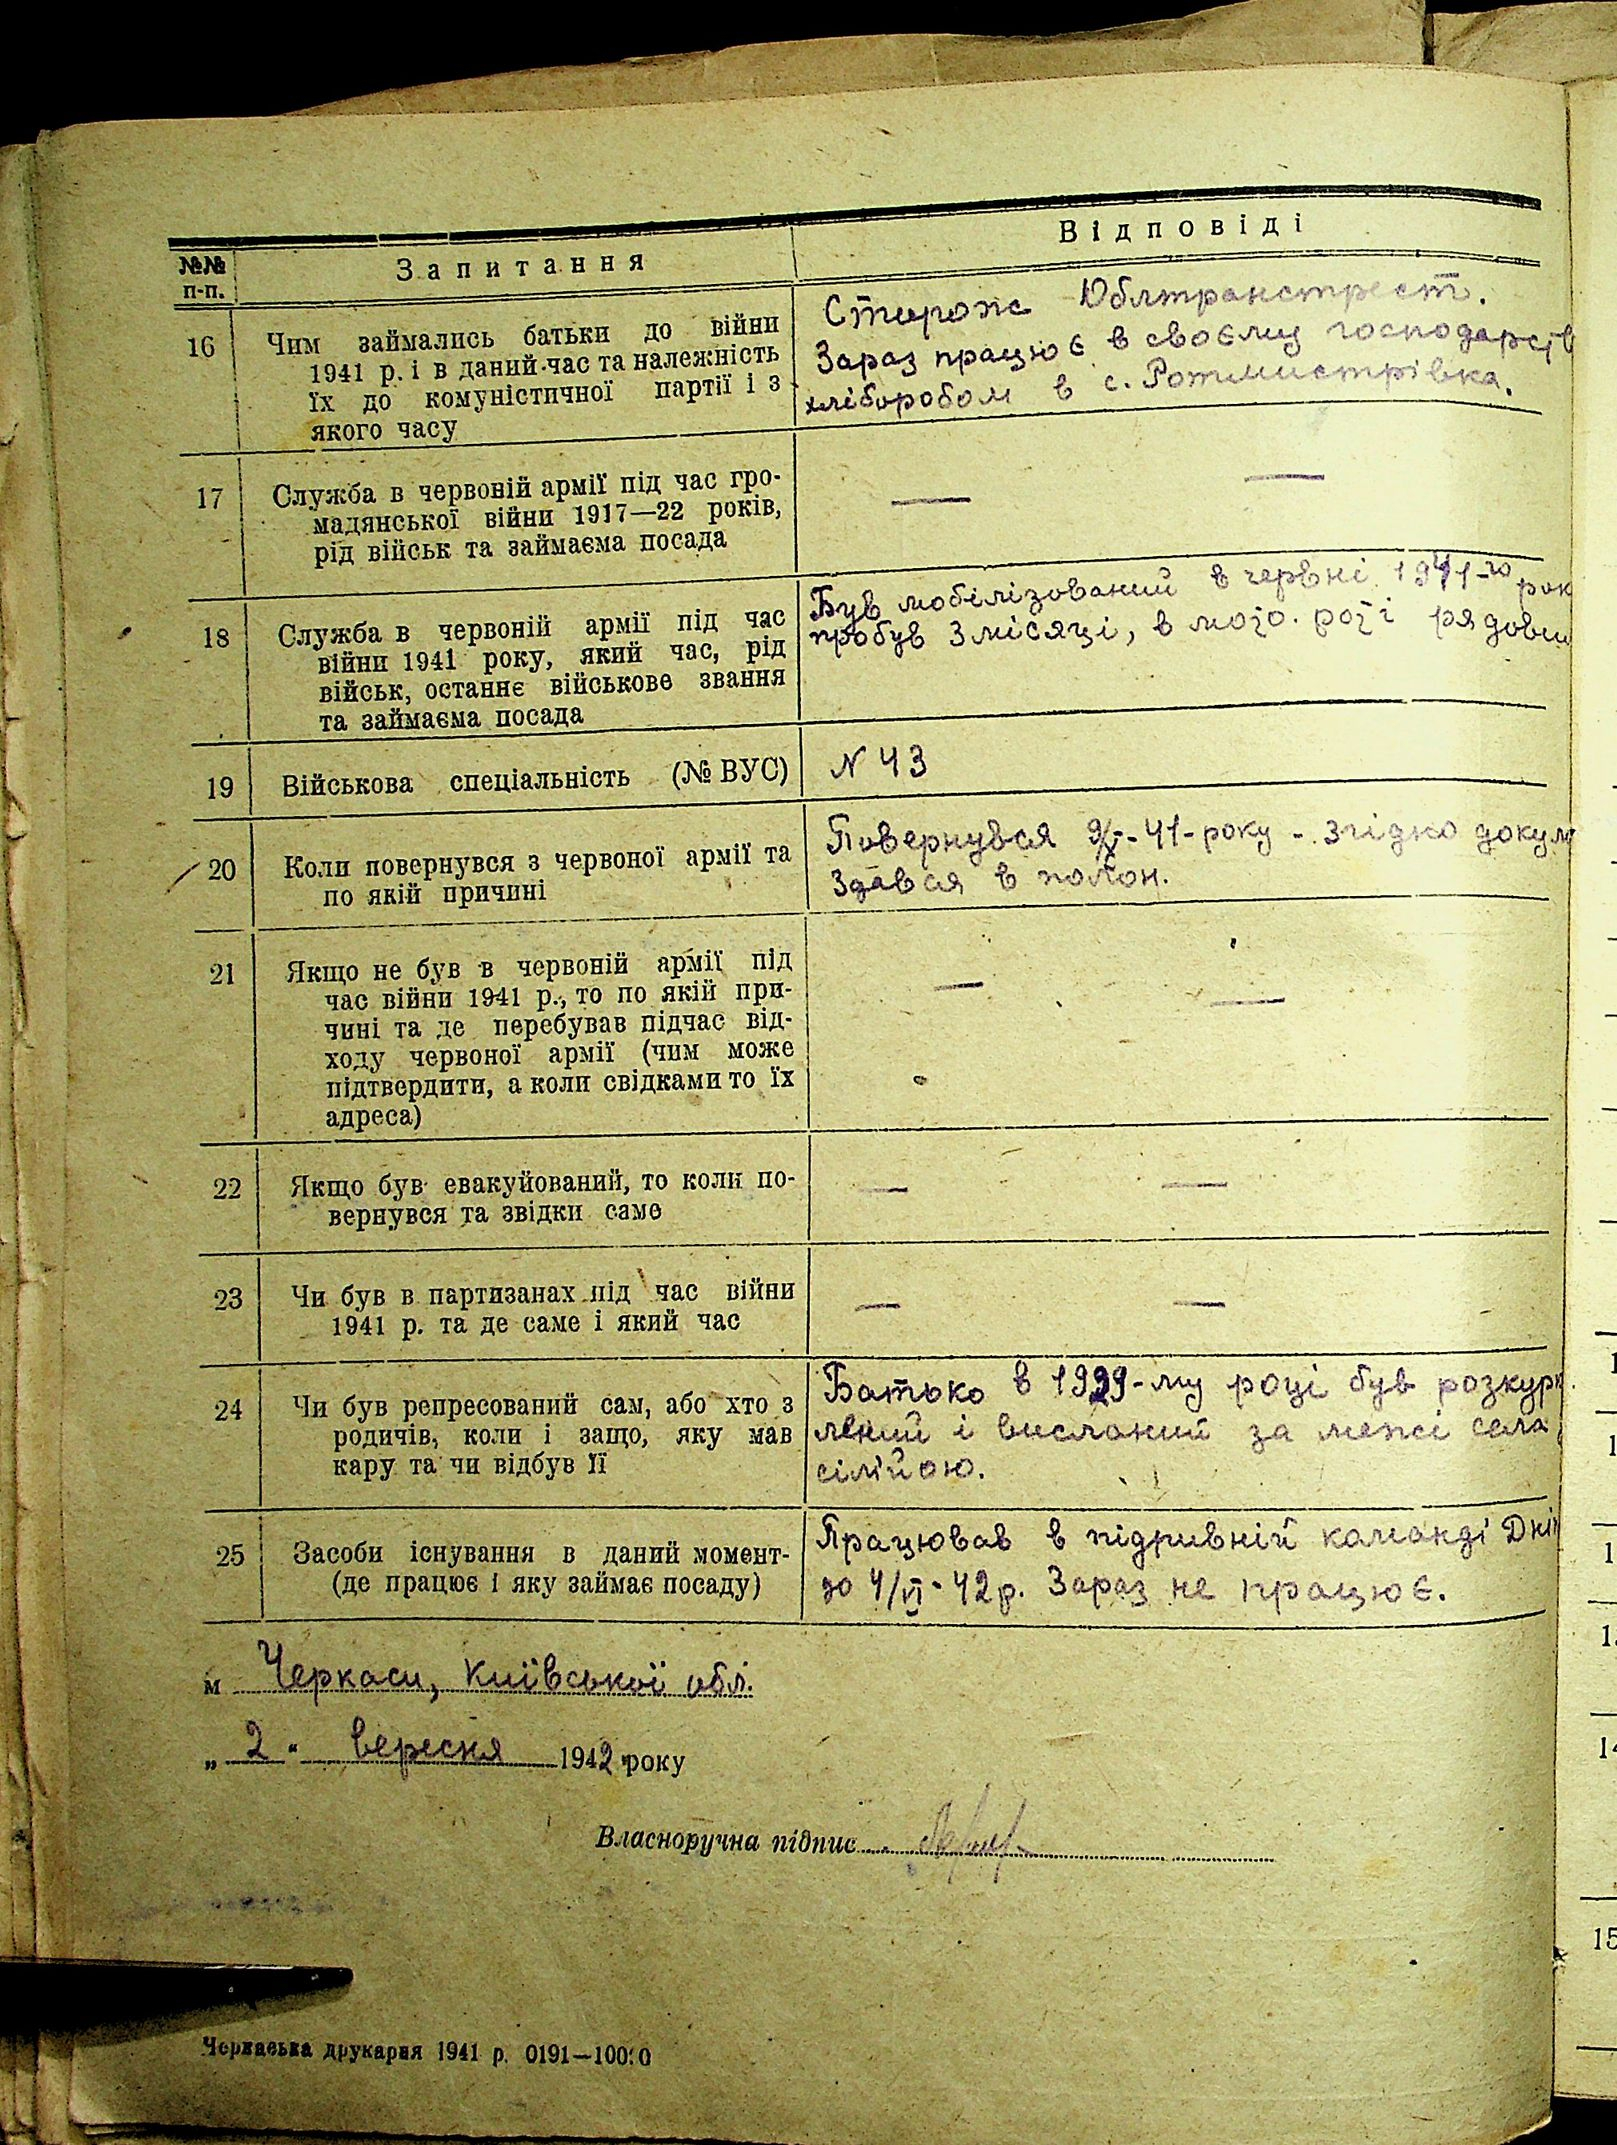 №№ п-п.
Запитання
Відповіді
16
Чим займались батьки до війни
1941 р. і в даний час та належність
їх до комуністичної партії і з
якого часу
Сторож Облтранстрест.
Зараз працює в своєму господарств
хліборобом в с. Ротмистрівка.
17
Служба в червоній армії під час гро-
мадянської війни 1917—22 років,
рід військ та займаєма посада
— —
18
Служба в червоній армії під час
війни 1941 року, який час, рід
військ, останнє військове звання
та займаєма посада
Був мобілізований в червні 1941-го рок
пробув 3 місяці, в рядовим
19
Військова спеціальність (№ ВУС)
N 43
20
Коли повернувся з червоної армії та
по якій причині
Повернувся -41-року - згідно докум
Здався в полон.
21
Якщо не був в червоній армії під
час війни 1941 р., то по якій при-
чині та де перебував підчас від-
ходу червоної армії (чим може
підтвердити, а коли свідками то їх
адреса)
— —
22
Якщо був евакуйований, то коли по-
вернувся та звідки саме
— —
23
Чи був в партизанах під час війни
1941 р. та де саме і який час
— —
24
Чи був репресований сам, або хто з
родичів, коли і защо, яку мав
кару та чи відбув її
Батько в 1929-му році був розкурк
лений і висланий за межі села
сім'йою.
25
Засоби існування в даний момент-
(де працює і яку займає посаду)
Працював в підривній команді Дні
до 4/VI-42р. Зараз не працює.
м Черкаси, Київської обл.
„ 2 " вересня 1942 року
Власноручна підпис
Черкаська друкарня 1941 р. 0191—10000
15